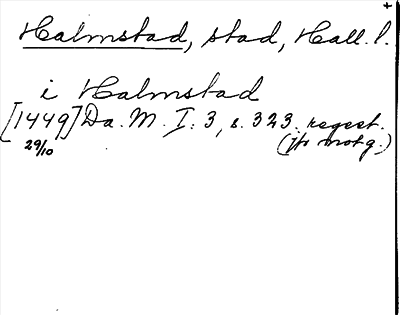 +
Halmstad, stad, Hall. l.
i Halmstad
[1449] Da. M. I: 3, s. 323. regest.
29/10 (jfr mot g.)